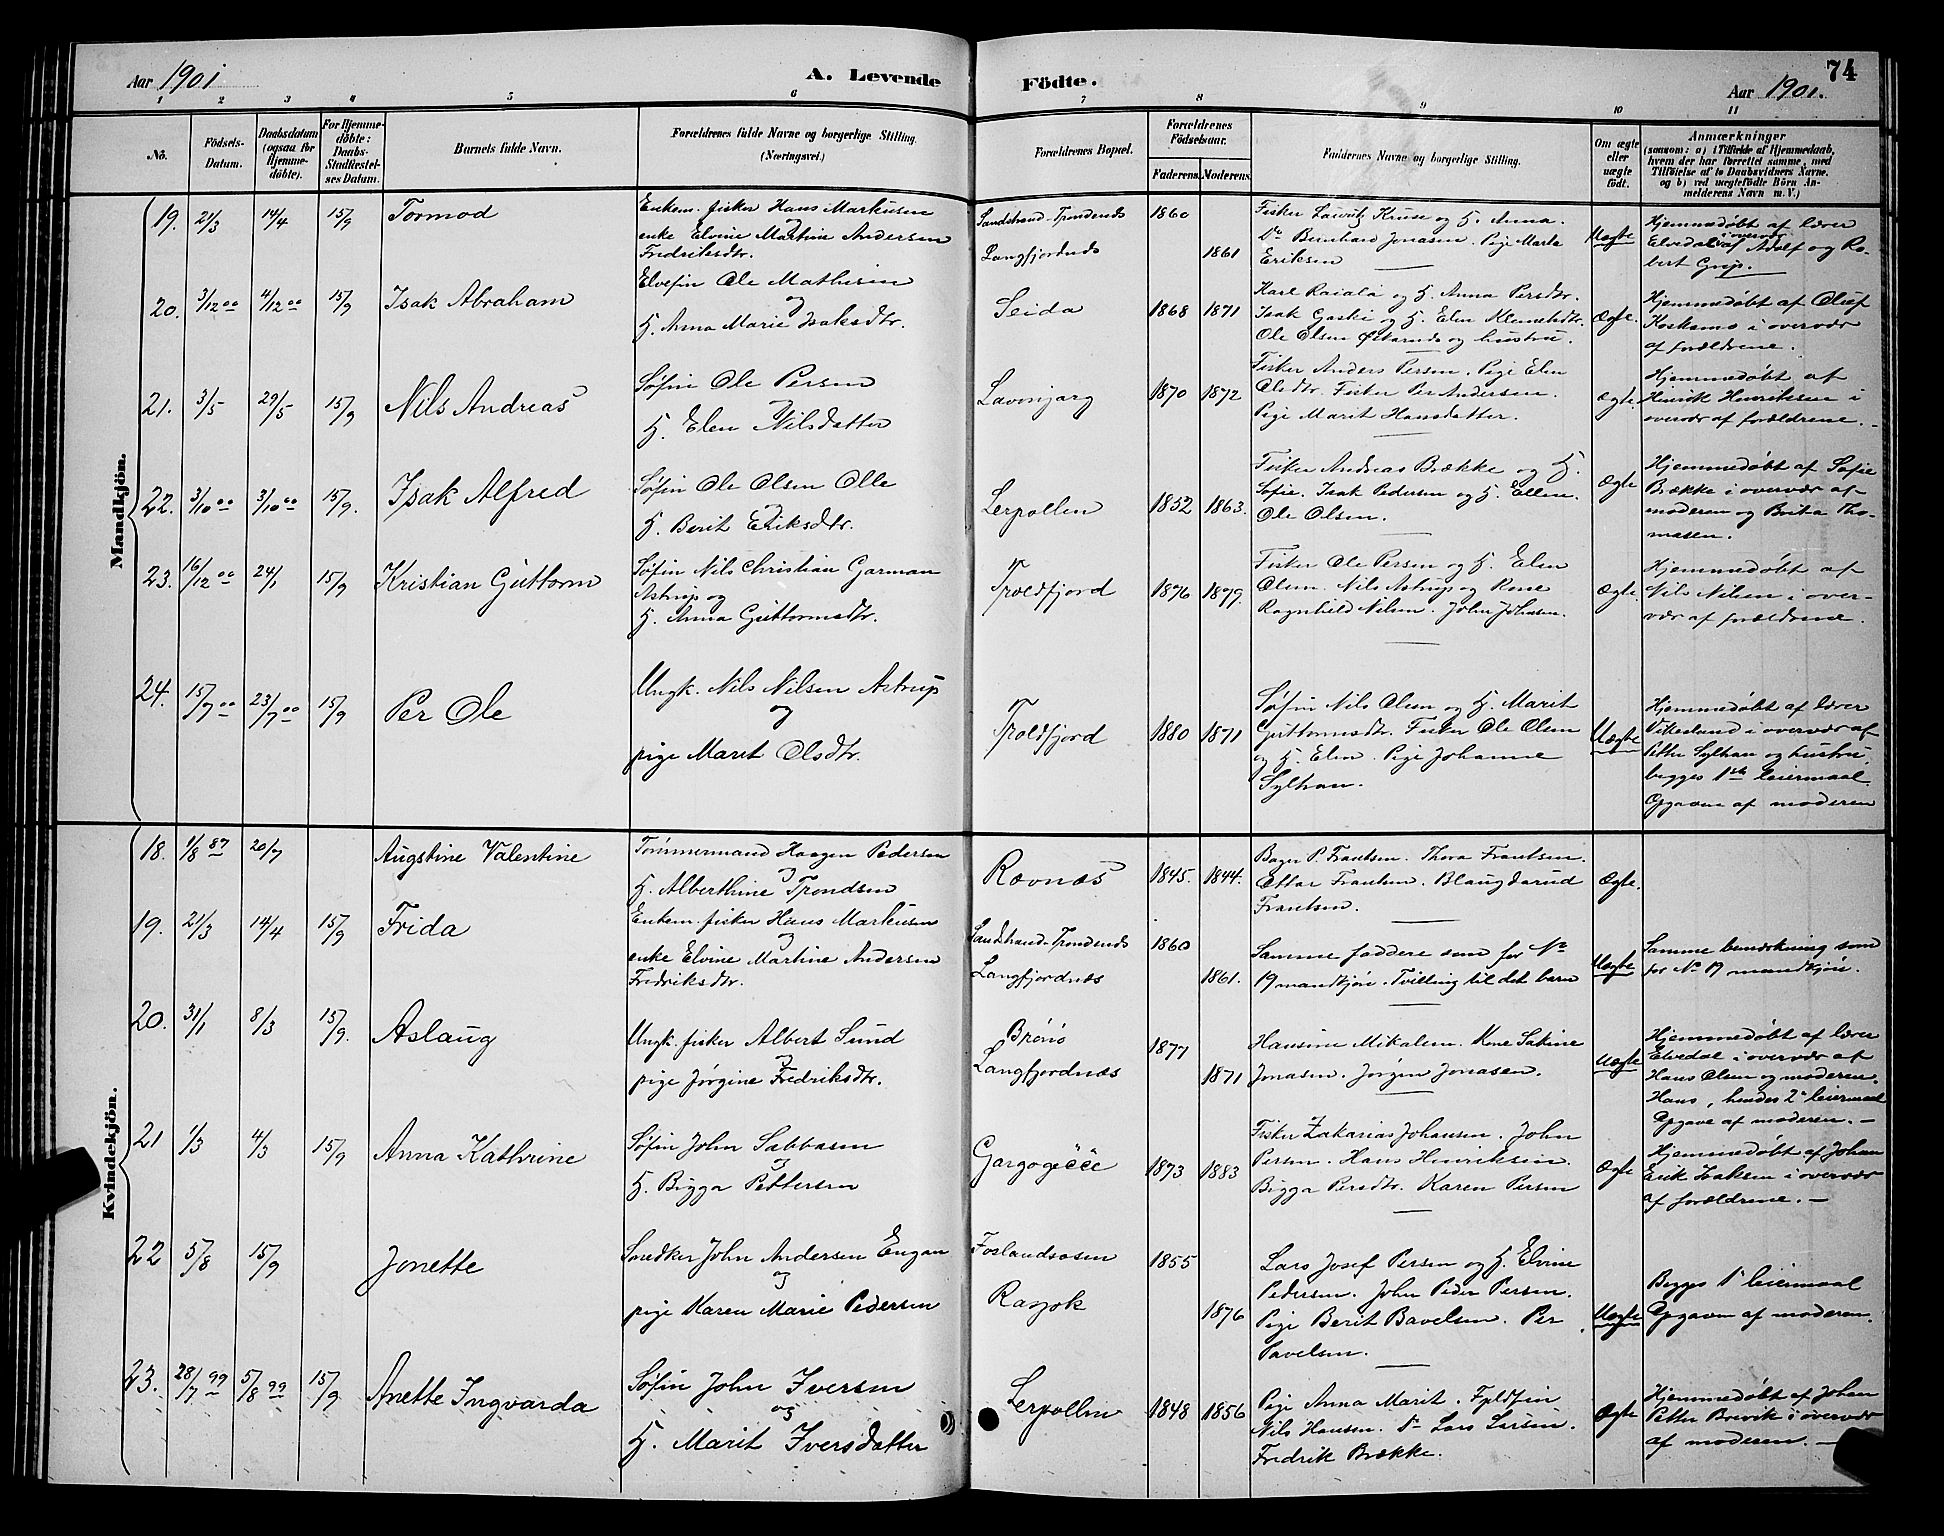 Aar 1901
A. Levende
Födte.
74
Aar 1901.
1 2 3 4 5 6 7 8 9 10 11
No.
Födsels-Datum.
Daabsdatum (ogsaa for Hjemme-döbte).
For Hjemme-döbte: Daabs-Stadfæstel-ses Datum.
Barnets fulde Navn.
Forældrenes fulde Navne og borgerlige Stilling. (Næringsvei.)
Forældrenes Bopæl.
Forældrenes Födselsaar.
Faderens. Moderens.
Faddernes Navne og borgerlige Stilling.
Om ægte eller uægte födt.
Anmærkninger
(saasom: a) i Tilfælde af Hjemmedaab, hvem der har forrettet samme, med Tilföielse af to Daabsvidners Navne. og b) ved uægtefödte Börn Anmelderens Navn m. V.)
Mandkjön.
19. 21/3 14/4 15/9 Tormod
Enkem. fisker Hans Markusen
og
enke Elvine Martine Andersen
Fredriksdtr.
Sandstrand. Trondenæs 1860
Langfjordnæs 1861
Fisker Lauritz Kruse og H. Anna.
Do Bernhard Jonasen. Pige Marta
Eriksen
Uægte
Hjemmedøbt af lærer
Elvedal i overvær af Adolf og Ro-
bert Grip.
20. 3/12 00 4/12 00 15/9 Isak Abraham
Elvefin Ole Mathisen
og
H. Anna Marie Isaksdtr.
Seida 1868 1871
Karl Raiala og H. Anna Persdtr.
Isak Gaski og H. Elen Klemetsdtr.
Ole Olsen og hustru.
Ægte.
Hjemmedøbt af Oluf
Koskamo i overvær
af forældrene.
21. 3/5 29/5 15/9 Nils Andreas
Søfin Ole Persen
og
H. Elen Nilsdatter
Lavonjarg 1870 1872
Fisker Anders Persen. Pige Elen
Olsdtr. Fisker Per Andersen.
Pige Marit Hansdatter.
Ægte.
Hjemmedøbt af
Henrik Henriksen i
overvær af forældrene.
22. 3/10 00 3/10 00 15/9. Isak Alfred
Søfin Ole Olsen Olle
og
H. Berit Eriksdtr.
Lerpollen 1852 1863.
Fisker Andreas Brække og H.
Sofie. Isak Pedersen og H. Ellen.
Ole Olsen.
Ægte
Hjemmedøbt af Sofie
Brække i overvær af
moderen og Brita Tho-
masen.
23. 16/12 00 24/1 15/9 Kristian Guttorm
Søfin Nils Christian Garman
Astrup og
H. Anna Guttormsdtr.
Troldfjord 1876 1879.
Fisker Ole Persen og H. Elen
Olsen. Nils Astrup og Kone
Ragnhild Nilsen. John Johasen.
Ægte.
Hjemmedøbt af
Nils Nilsen i over-
vær af forældrene.
24. 15/7 00 23/7 00 15/9 Per Ole
Ungk. Nils Nilsen Astrup
og
pige Marit Olsdtr.
Troldfjord 1880 1871
Søfin Nils Olsen og H. Marit
Guttormsdtr. Fisker Ole Olsen
og H. Elen. Pige Johanne
Sylhan.
Uægte
Hjemmedøbt af lærer
Vikesland i overvær af
Petter Sylhan og hustru.
begges 1ste leiermaal
Opgaven af moderen
Kvindekjön.
18. 1/8 87 20/7 Augstine Valentine
Tømmermand Haagen Pedersen
og
H. Alberthine Trondsen
Ravnæs 1845. 1844.
Bager P. Frantsen. Thora Frantsen.
Ottar Frantsen. Blaugdarud
Frantsen.
Ægte.
19. 21/3 14/4 15/9 Frida
Enkem. fisker Hans Markusen
og
enke Elvine Martine Andersen
Fredriksdtr.
Sandstrand. Trondenæs 1860
Langfjordnæs 1861.
Samme faddere som for No
19 mandkjøn. Tvilling til det barn
Uægte
Samme bemærkning som
for No 19 mandkjøn.
20. 31/1 8/3 15/9. Aslaug
Ungk. fisker Albert Sund
og
pige Jørgine Fredriksdtr.
Brønø 1877
Langfjordnæs 1871
Hansine Mikalsen. Kone Sakine
Jonasen. Jørgen Jonasen.
Uægte
Hjemmedøbt af lærer
Elvedal i overvær af
Hans Olsen og moderen.
Hans, hendes 2et leiermaal
Opgave af moderen.
21 1/3 4/3 15/9 Anna Kathrine
Søfin John Sabbasen
og
H. Bigga Pettersen
Gargogečče 1873 1883
Fisker Zakarias Johansen. John
Persen. Hans Henriksen.
Bigga Persdtr. Karen Persen
Ægte
Hjemmedøbt af Johan
Erik Isaksen i overvær
af forældrene.
22 5/8 15/9 Jonette
Snedker John Andersen Engan
og
pige Karen Marie Pedersen
Foslandsosen 1855
Rasjok 1876
Lars Josef Persen og H. Elvine
Pedersen. John Peder Persen.
Pige Berit Bavelsen. Per
Pavelsen.
Uægte
Begges 1t leiermaal
Opgaven af moderen.
23. 28/7 99 5/8 99 15/9 Anette Ingvarda
Søfin John Iversen
og
H. Marit Iversdatter
Lerpollen 1848 1856
Pige Anna Marit. Fjeldfin
Nils Hansen. Do Lars Larsen.
Fredrik Brække.
Ægte
Hjemmedøbt af Johan
Petter Brevik i overvær
af moderen.